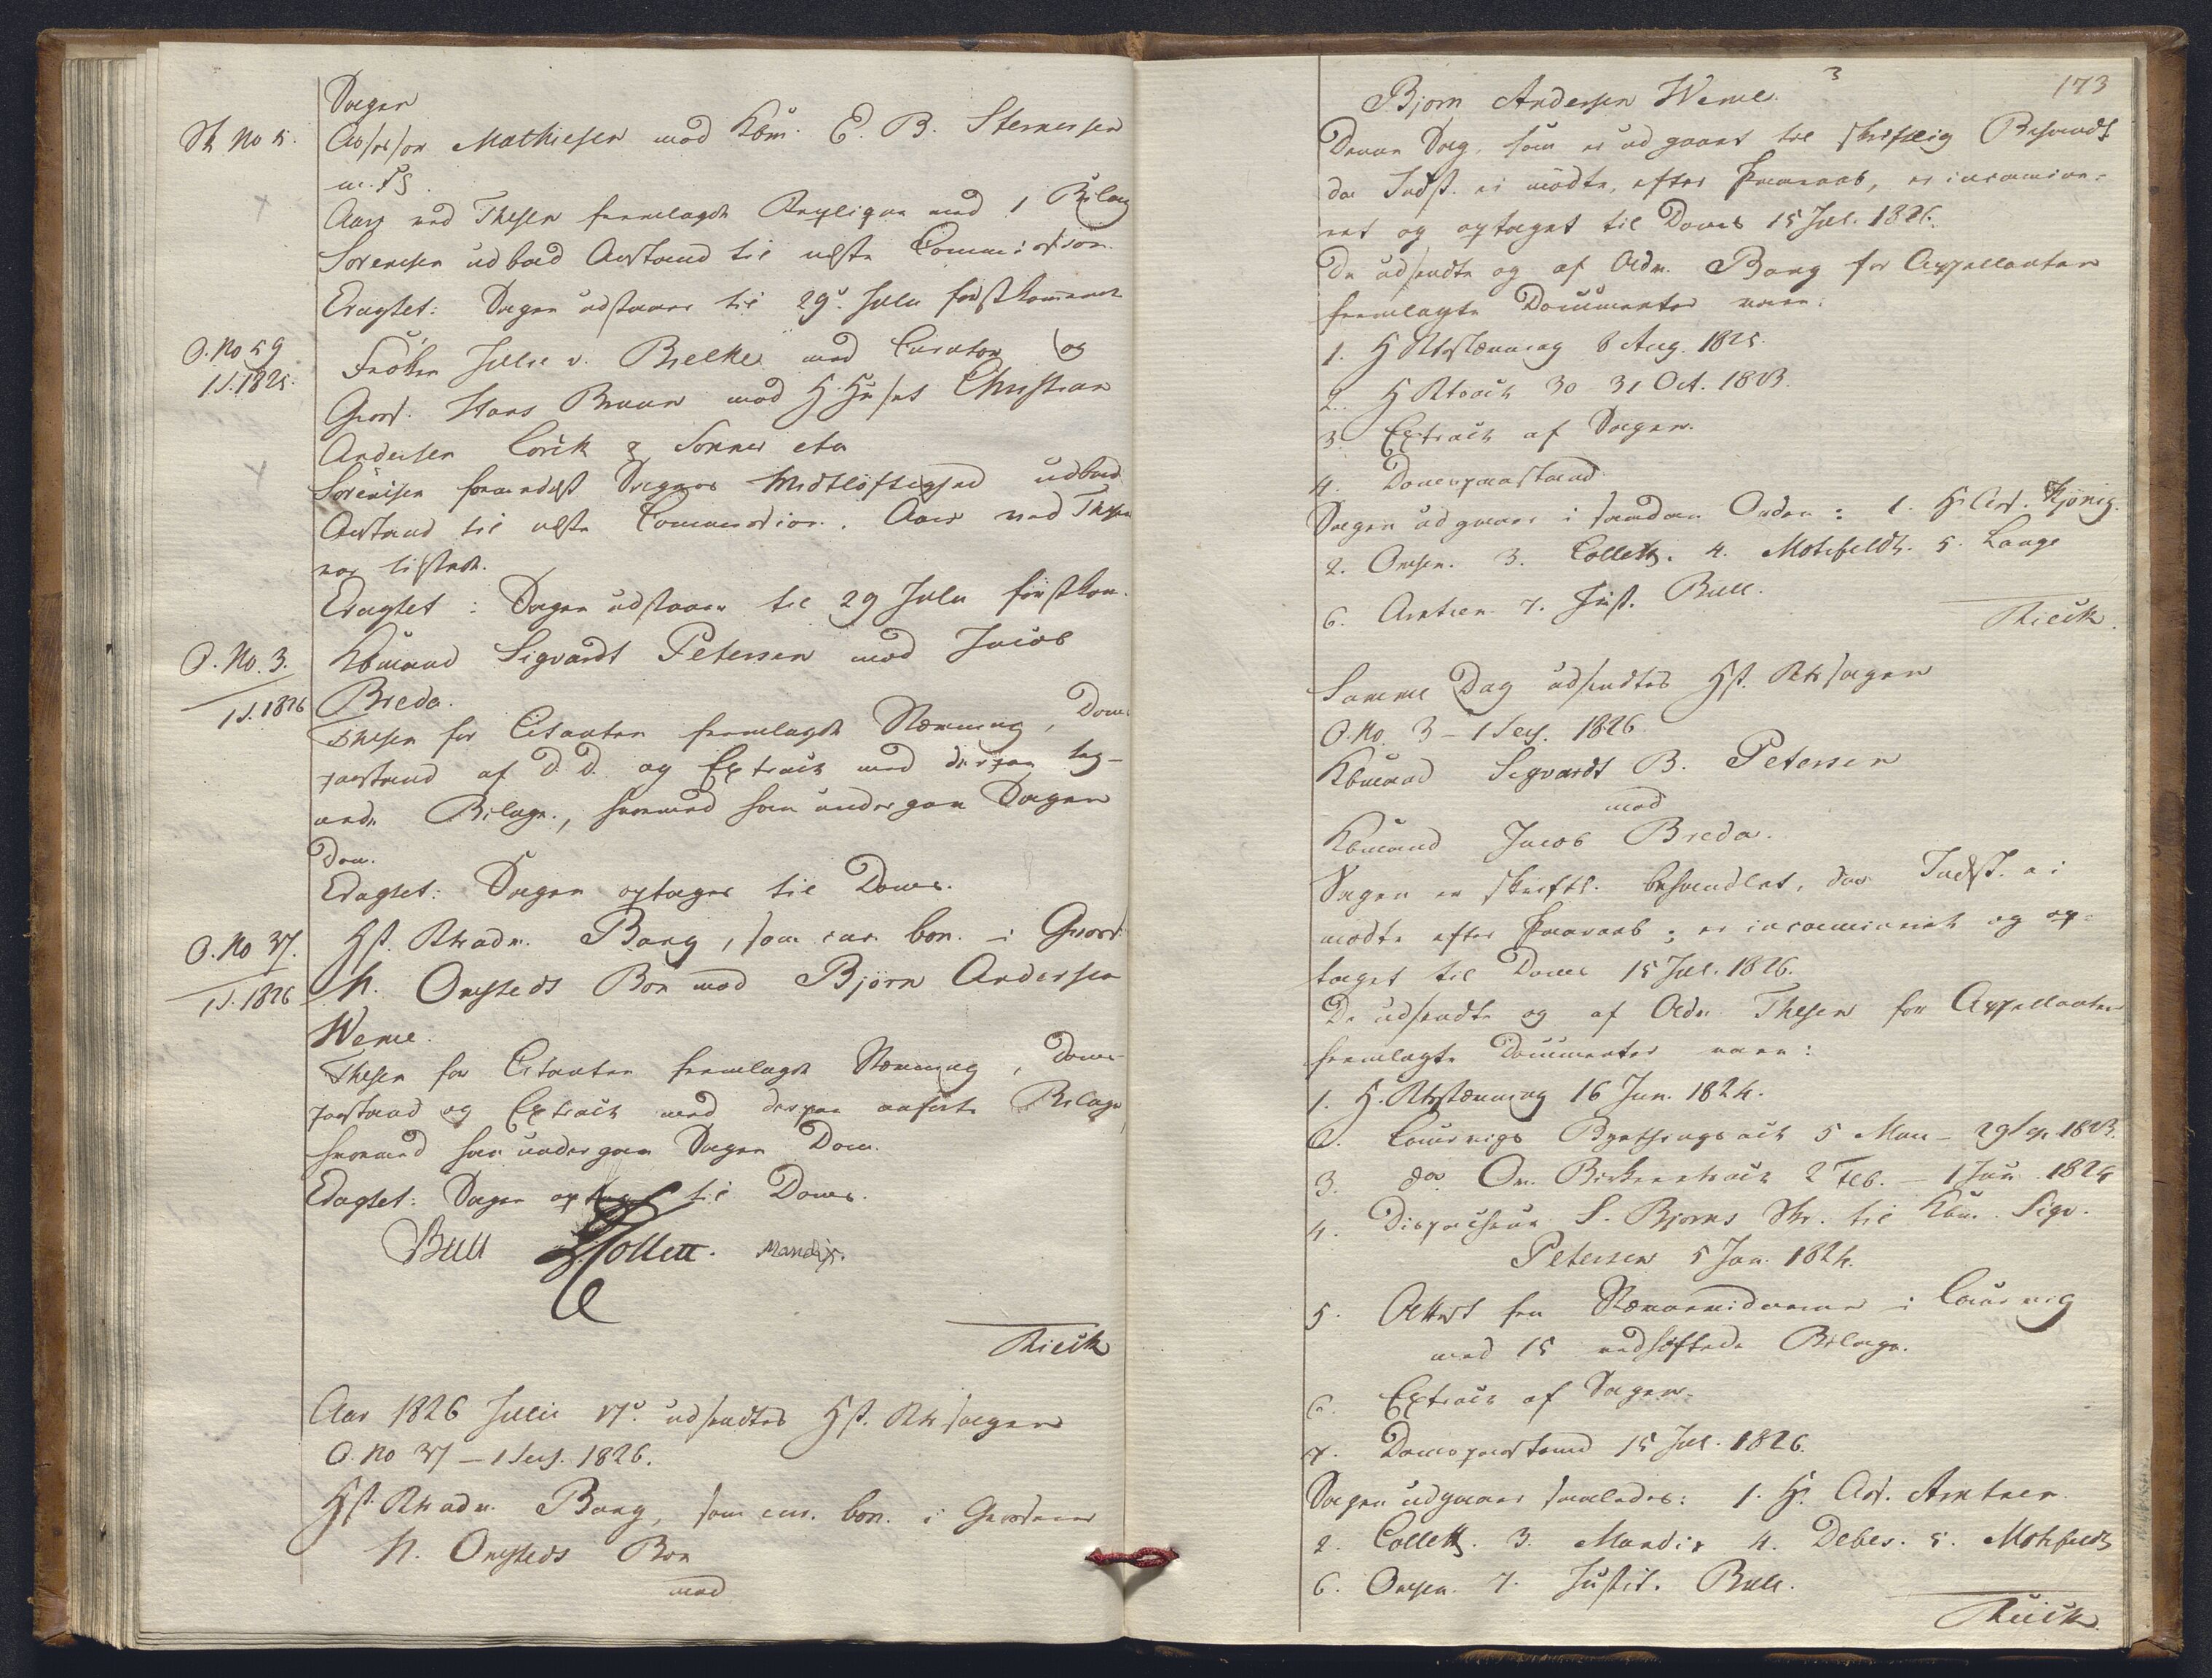 Sagen
Sk No 5. Assessor Mathiesen mod Kbm. E. B. Sternersen
m. fl.
Aars ved Thesen fremlagde Replique med 1 Bilag
Sörensen udbad Anstand til næste Commission.
Eragtet: Sagen udstaaer til 29de Julii förstkommende
O. No 59 1 S. 1825. Fröken Julie v. Bielke med Curator og
Grosr. Hans Bruun mod H Huset Christian
Andersen Lorck & Sönner etc
Sörensen formedelst Sagens Vidtlöftighed udbad
Anstand til næste Commission. Aars ved Thesen
var tilstede.
Eragtet: Sagen udstaaer til 29 Julii förstkom.
O. No. 3. 1 S. 1826 Kbmand Sigvardt Petersen mod Jacob
Breda.
Thesen for Citanten fremlagde Stævning, Doms
paastand af D. D. og Extract med derpaa teg-
nede Bilage, hvormed han undergav Sagen
Dom.
Eragtet: Sagen optages til Doms.
O. No 37. 1 S. 1826 Hst. Rtsadv. Bang, som cur. bon. i Grosr.
N. Omsteds Boe mod Björn Andersen
Werne.
Thesen for Citanten fremlagde Stævning, Doms-
paastand og Extract med derpaa anförte Bilage
hvormed han undergav Sagen Dom.
Eragtet: Sagen optages til Doms.
Bull J. Collett. Mandix.
Rieck
Aar 1826 Julii 17de udsendtes Hst. Rts sagen
O. No 37 – 1 Sess. 1826.
Hst. Rtsadv. Bang, som cur. bon. i Grosserer
N. Omsteds Boe
mod
173
Bjorn Andersen Werne.
Denne Sag, som er udgaaet til skriftlig Behandl.
da Indst. ei mödte, efter Paaraab, er incamine-
ret og optaget til Doms 15 Jul. 1826.
De udsendte og af Adv. Bang for Appellanten
fremlagte Documenter vare:
1. H Rtsstævning 6 Aug. 1825.
2. H Rtsact 30 31 Oct. 1823.
3. Extract af Sagen.
4. Domspaastand.
Sagen udgaaer i saadan Orden: 1. Hr Ass.
2. Omsen. 3. Collett. 4. Motzfeldt. 5. Lange
6. Arntzen 7. Just. Bull.
Rieck.
Samme Dag udsendtes Hst. Rts sagen
O. No. 3 – 1 Sess. 1826.
Kbmand Sigvardt B. Petersen
mod
Kbmand Jacob Breda.
Sagen er skriftl. behandlet, da Indst. ei
mödte efter Paaraab; er incamineret og op-
taget til Doms 15 Jul. 1826.
De udsendte og af Adv. Thesen for Appellanten
fremlagte Documenter vare:
1. H. Rtsstævning 16 Jun. 1824.
2. Laurvigs Byethingsact 5 Mai – 29 Sep. 1823.
3. do Ov. Birkeretsact 2 Feb. – 1 Jun. 1824
4. Dispacheur S. Bjorns Skr. til Kbm. Sigv.
Petersen 5 Jan. 1824.
5. Attest fra Stævnevidnerne i Laurvig
med 15 vedhæftede Bilage.
6. Extract af Sagen.
7. Domspaastand 15 Jul. 1826.
Sagen udgaaer saaledes: 1. Hr. Ass. Arntzen.
2. Collett. 3. Mandix 4. Debes. 5. Motzfeldt
6. Omsen. 7. Justit. Bull.
Rieck.